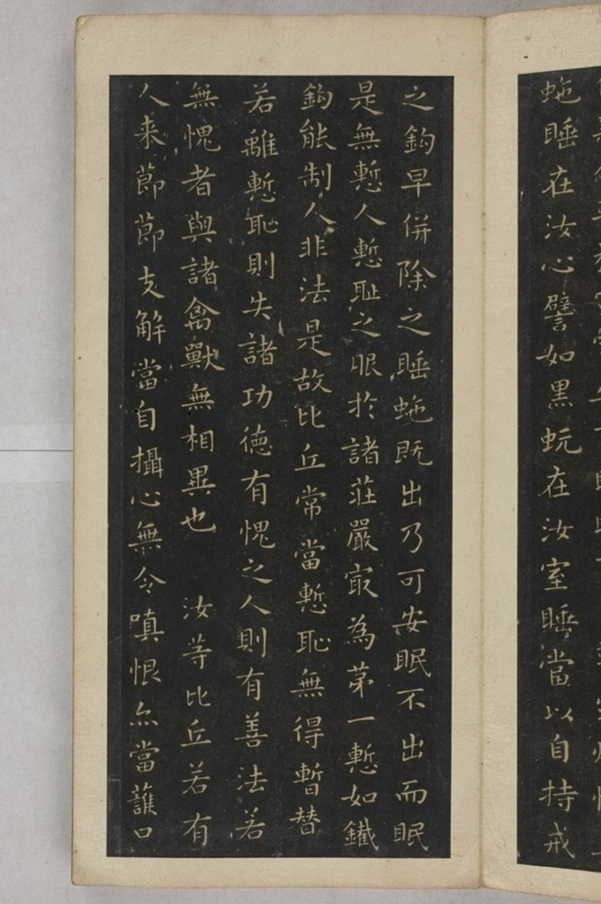 虵睡在汝心譬如黑蚖在汝室睡當以自持戒
之鈎早併除之睡虵既出乃可安眠不出而眠
是無慙人慙耻之服於諸莊嚴㝡為苐一慙如鐵
鈎能制人非法是故比丘常當慙恥無得暫替
若離慙恥則失諸功德有愧之人則有善法若
無愧者與諸禽獸無相異也 汝等比丘若有
人来節節支解當自攝心無令嗔恨亦當護口